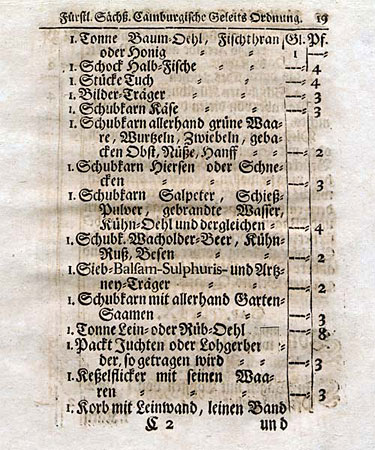 Fürstl. Sächß. Camburgische Geleits Ordnung. 19
1. Tonne Baum-Oehl, Fischthran Gl. Pf.
oder Honig = = 1 —
1. Schock Halb-Fische = — 4
1. Stücke Tuch = = — 4
1. Bilder-Träger = = — 3
1. Schubkarn Käse = = — 3
1. Schubkarn allerhand grüne Waa-
re, Wurtzeln, Zwiebeln, geba-
cken Obst, Nüße, Hanff = = — 2
1. Schubkarn Hiersen oder Schne-
cken = = = — 3
1. Schubkarn Salpeter, Schieß-
Pulver, gebrandte Wasser,
Kühn-Oehl und dergleichen = — 4
1. Schubk. Wacholder-Beer, Kühn-
Ruß, Besen = = — 3
1. Sieb-Balsam-Sulphuris- und Artz-
ney-Träger = = — 2
1. Schubkarn mit allerhand Garten-
Saamen = = — 3
1. Tonne Lein- oder Rüb-Oehl — 8
1. Packt Juchten oder Lohgerber Le-
der, so getragen wird = = — 3
1. Keßelflicker mit seinen Waa-
ren = = = — 3
1. Korb mit Leinwand, leinen Band
C 2 und